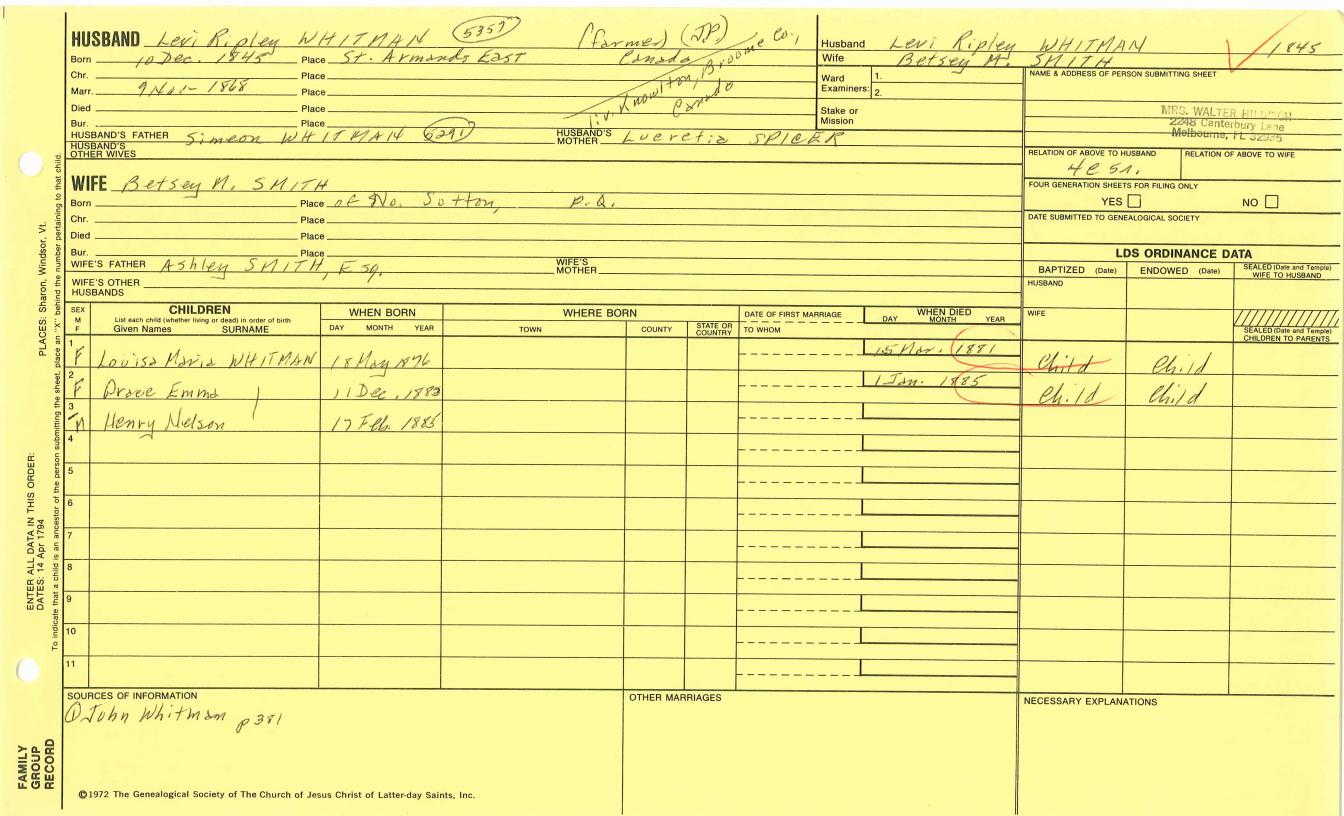 HUSBAND Levi Ripley WHITMAN (5357) (farmer) (J.P.)
Born 10 Dec. 1845 Place St. Armands East Canada
Chr. Place liv. Knowlton, Broome Co., Canada
Marr. 9 Nov - 1868 Place
Died Place
Bur. Place
HUSBAND'S FATHER Simeon WHITMAN (5291) HUSBAND'S MOTHER Lucretia SPICER
HUSBAND'S OTHER WIVES
Husband Levi Ripley WHITMAN 1845
Wife Betsey M. SMITH
Ward Examiners: 1.
2.
Stake or Mission
NAME & ADDRESS OF PERSON SUBMITTING SHEET
MRS. WALTER
2248 Canterbury Lane
Melbourne, FL 32935
RELATION OF ABOVE TO HUSBAND RELATION OF ABOVE TO WIFE
FOUR GENERATION SHEETS FOR FILING ONLY
YES NO
DATE SUBMITTED TO GENEALOGICAL SOCIETY
WIFE Betsey M. SMITH
Born Place of No. Sutton, P.Q.
Chr. Place
Died Place
Bur. Place
WIFE'S FATHER Ashley SMITH, Esq. WIFE'S MOTHER
WIFE'S OTHER HUSBANDS
LDS ORDINANCE DATA
BAPTIZED (Date) ENDOWED (Date) SEALED (Date and Temple) WIFE TO HUSBAND
HUSBAND
WIFE
SEALED (Date and Temple) CHILDREN TO PARENTS
SEX M F
CHILDREN
List each child (whether living or dead) in order of birth
Given Names SURNAME
WHEN BORN
DAY MONTH YEAR
WHERE BORN
TOWN COUNTY STATE OR COUNTRY
DATE OF FIRST MARRIAGE
TO WHOM
WHEN DIED
DAY MONTH YEAR
1 F Louisa Maria WHITMAN 18 May 1876 15 Mar. 1881 Child Child
2 F Emma 11 Dec. 1883 1 Jan. 1885 Child Child
3 M Henry Nelson 17 Feb. 1885
4
5
6
7
8
9
10
11
SOURCES OF INFORMATION
① John Whitman p 381
OTHER MARRIAGES
NECESSARY EXPLANATIONS
©1972 The Genealogical Society of The Church of Jesus Christ of Latter-day Saints, Inc.
FAMILY GROUP RECORD
ENTER ALL DATA IN THIS ORDER:
DATES: 14 Apr 1794 PLACES: Sharon, Windsor, Vt.
To indicate that a child is an ancestor of the person submitting the sheet, place an "X" behind the number pertaining to that child.